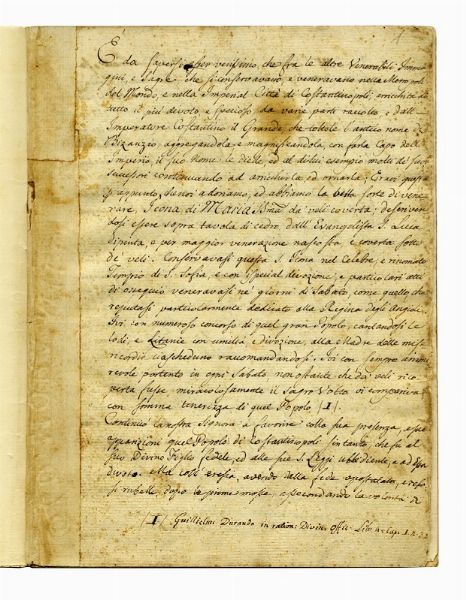 1
E da sapersi per verissimo, che fra le altre Venerabili Immagini, e Sagre che si conservavano, e veneravano nella Metropoli
del Mondo, e nella Imperial Città di Costantinopoli, arricchita da
tutto il più devoto, e spezioso da varie parti raccolto, e dall'
Imperatore Costantino il Grande, che tottole l'antico nome di
Bizanzio, aggregandola e magnificandola, con farla Capo dell'
Imperio, il suo Nome le diede, ed al di lui esempio molti de' suoi
successori continuando ad arricchirla ed ornarla; Era
appunto, Icona di Maria SSma da' veli coverta,
sopra tavola di cedro, dall'Evangelista S. Luca
dipinta, e per maggior venerazione nascosta e coverta sotto
de' veli. Conservavasi questa S. Icona nel Celebre, e rinomato
Tempio di S. Sofia, e con special divozione, e particolari atti
di ossequio veneravasi ne' giorni di Sabato, come quello che
reputasi particolarmente dedicato alla Regina degli Angioli.
Ivi con numeroso concorso di quel gran Popolo, cantandosi le
lodi, e Litanie con umiltà e divozione, alla Madre delle
ciascheduno raccomandandosi. Ivi con sempre
portento in ogni Sabato, nonostante che da' veli
coverta fusse, miracolosamente il Sagro Volto si
con somma tenerezza di quel Popolo (1).
Continuò la nostra Signora a favorire colla sua presenza, e sue
apparizioni quel Popolo di Costantinopoli sintanto che fu al
suo Divino Figlio fedele, ed alle sue S. Leggi ubbidiente, e ad Essa
divoto. Ma colà eresia, avendo dalla fede apostatato, e
si rubelle, dopo la prima mossa, e secondando la volontà di
(1) Guillielm: Durando in ration: Divin: Offic: Lib: 4. Cap. 1. n. 31